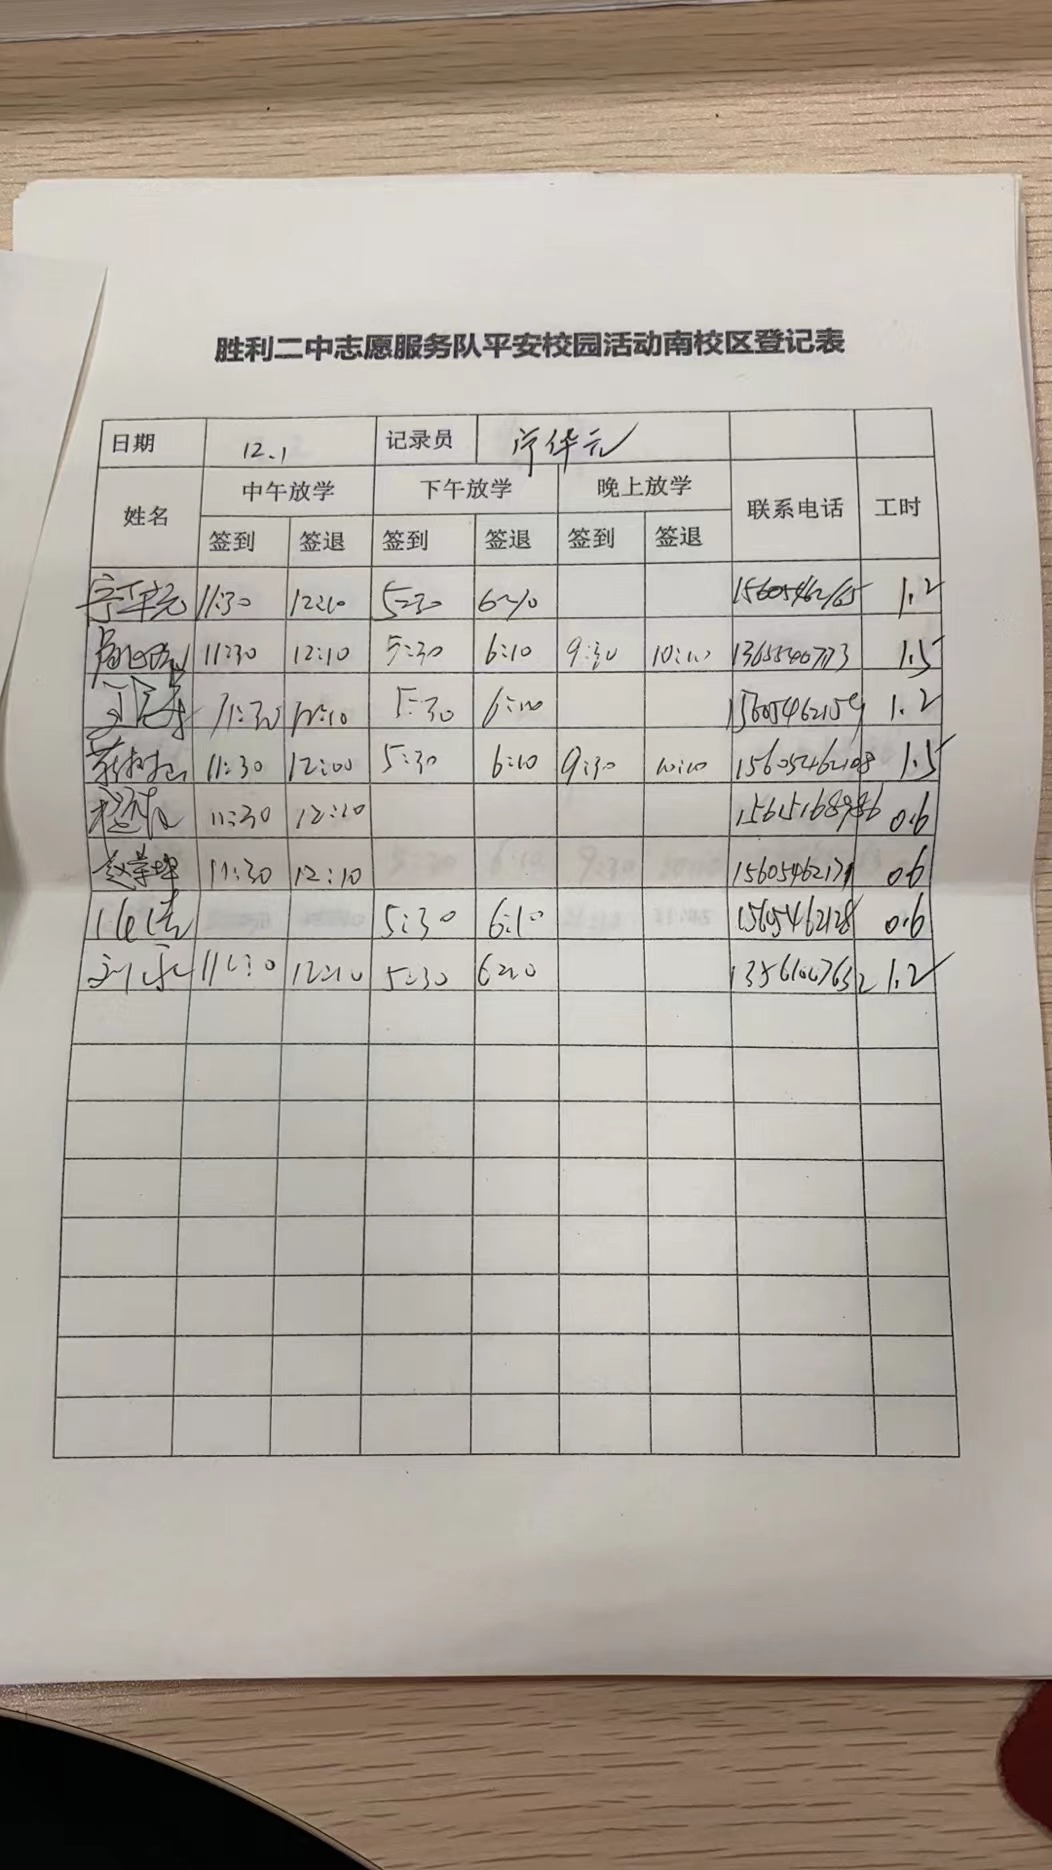 胜利二中志愿服务队平安校园活动南校区登记表
日期 12.1 记录员 华元
姓名 中午放学 下午放学 晚上放学 联系电话 工时
签到 签退 签到 签退 签到 签退
11:30 12:10 5:30 6:10 15605462165 1.2
11:30 12:10 5:30 6:10 9:30 10:10 1.5
11:30 12:10 5:30 6:10 15605462159 1.2
11:30 12:00 5:30 6:10 9:30 10:10 15605462108 1.5
11:30 12:10 15615168986 0.6
赵荣坤 11:30 12:10 0.6
5:30 6:10 15605462128 0.6
11:30 12:10 5:30 6:10 13561007632 1.2